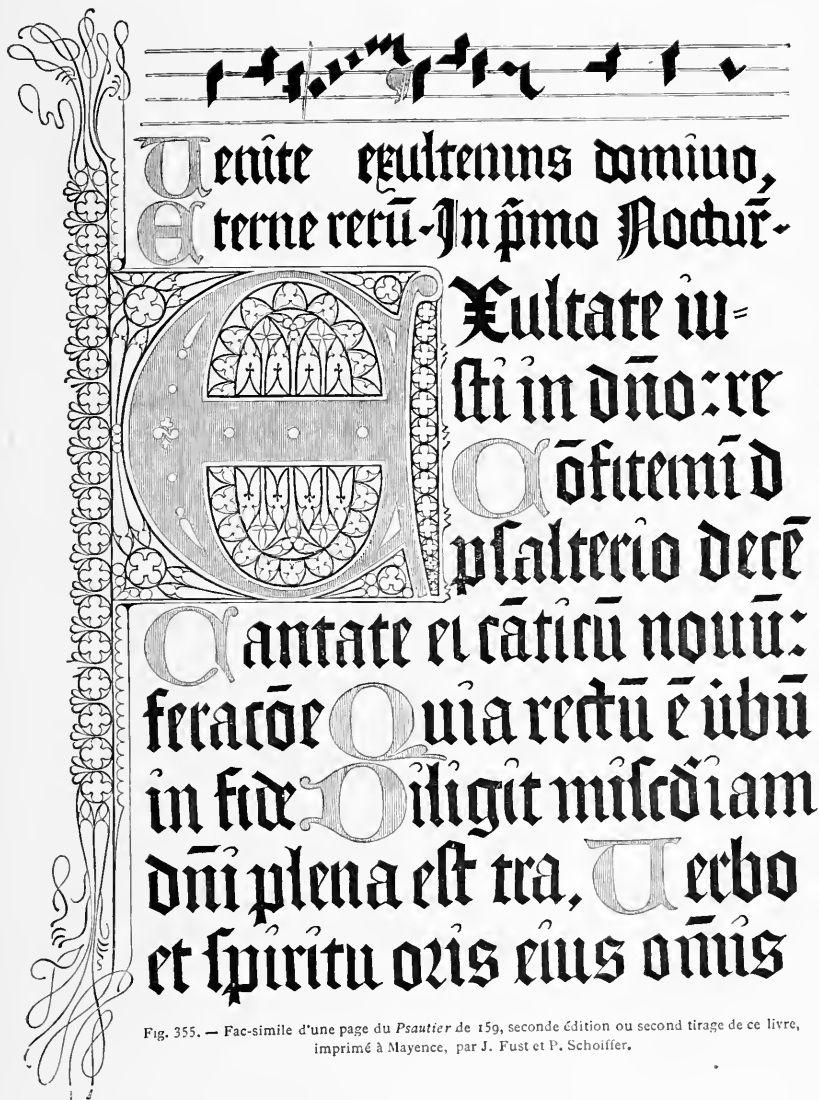 Uenite exultemns domino,
Eterne rerū-In p̄mo Noctur̄-
EXultate iu-
sti in dn̄o: re
Cōfitemī d
psalterio decē
Cantate ei cāticū nouū:
feracōe Quia rectū ē ūbū
in fide Diligit misc̄diam
dn̄i plena est tra, Uerbo
et spiritu oris eius om̄is
Fig. 355. — Fac-simile d'une page du Psautier de 159, seconde édition ou second tirage de ce livre,
imprimé à Mayence, par J. Fust et P. Schoiffer.